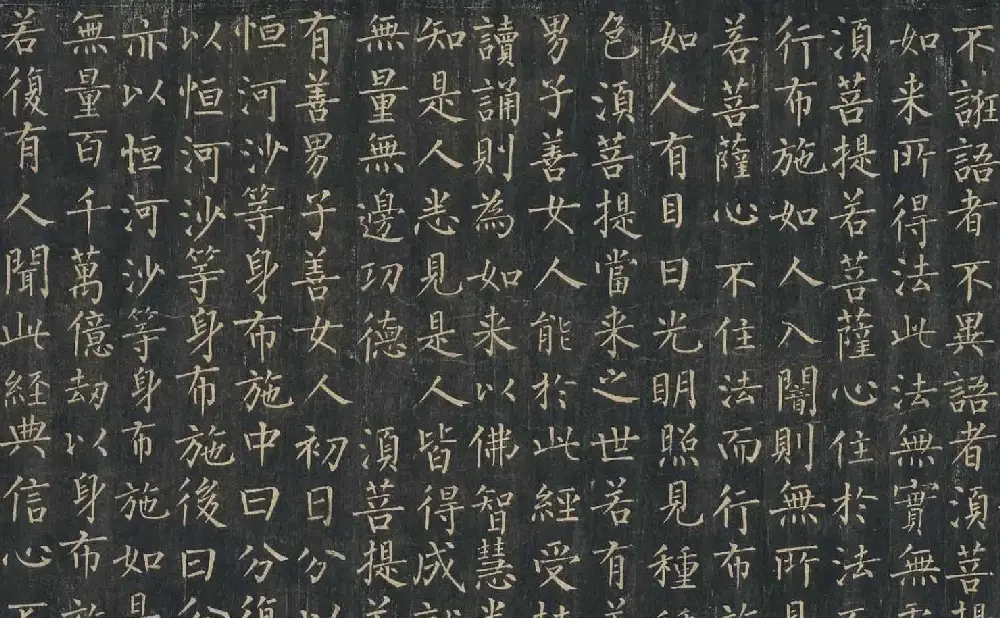 不誑語者不異語者須菩提
如来所得法此法無實無
須菩提若菩薩心住於法
行布施如人入闇則無所見
若菩薩心不住法而行布施
如人有目日光明照見種種
色須菩提當来之世若有善
男子善女人能於此經受持
讀誦則為如来以佛智慧悉
知是人悉見是人皆得成就
無量無邊功德 須菩提若
有善男子善女人初日分以
恒河沙等身布施中日分復
以恒河沙等身布施後日分
亦以恒河沙等身布施如是
無量百千萬億劫以身布施
若復有人聞此經典信心不